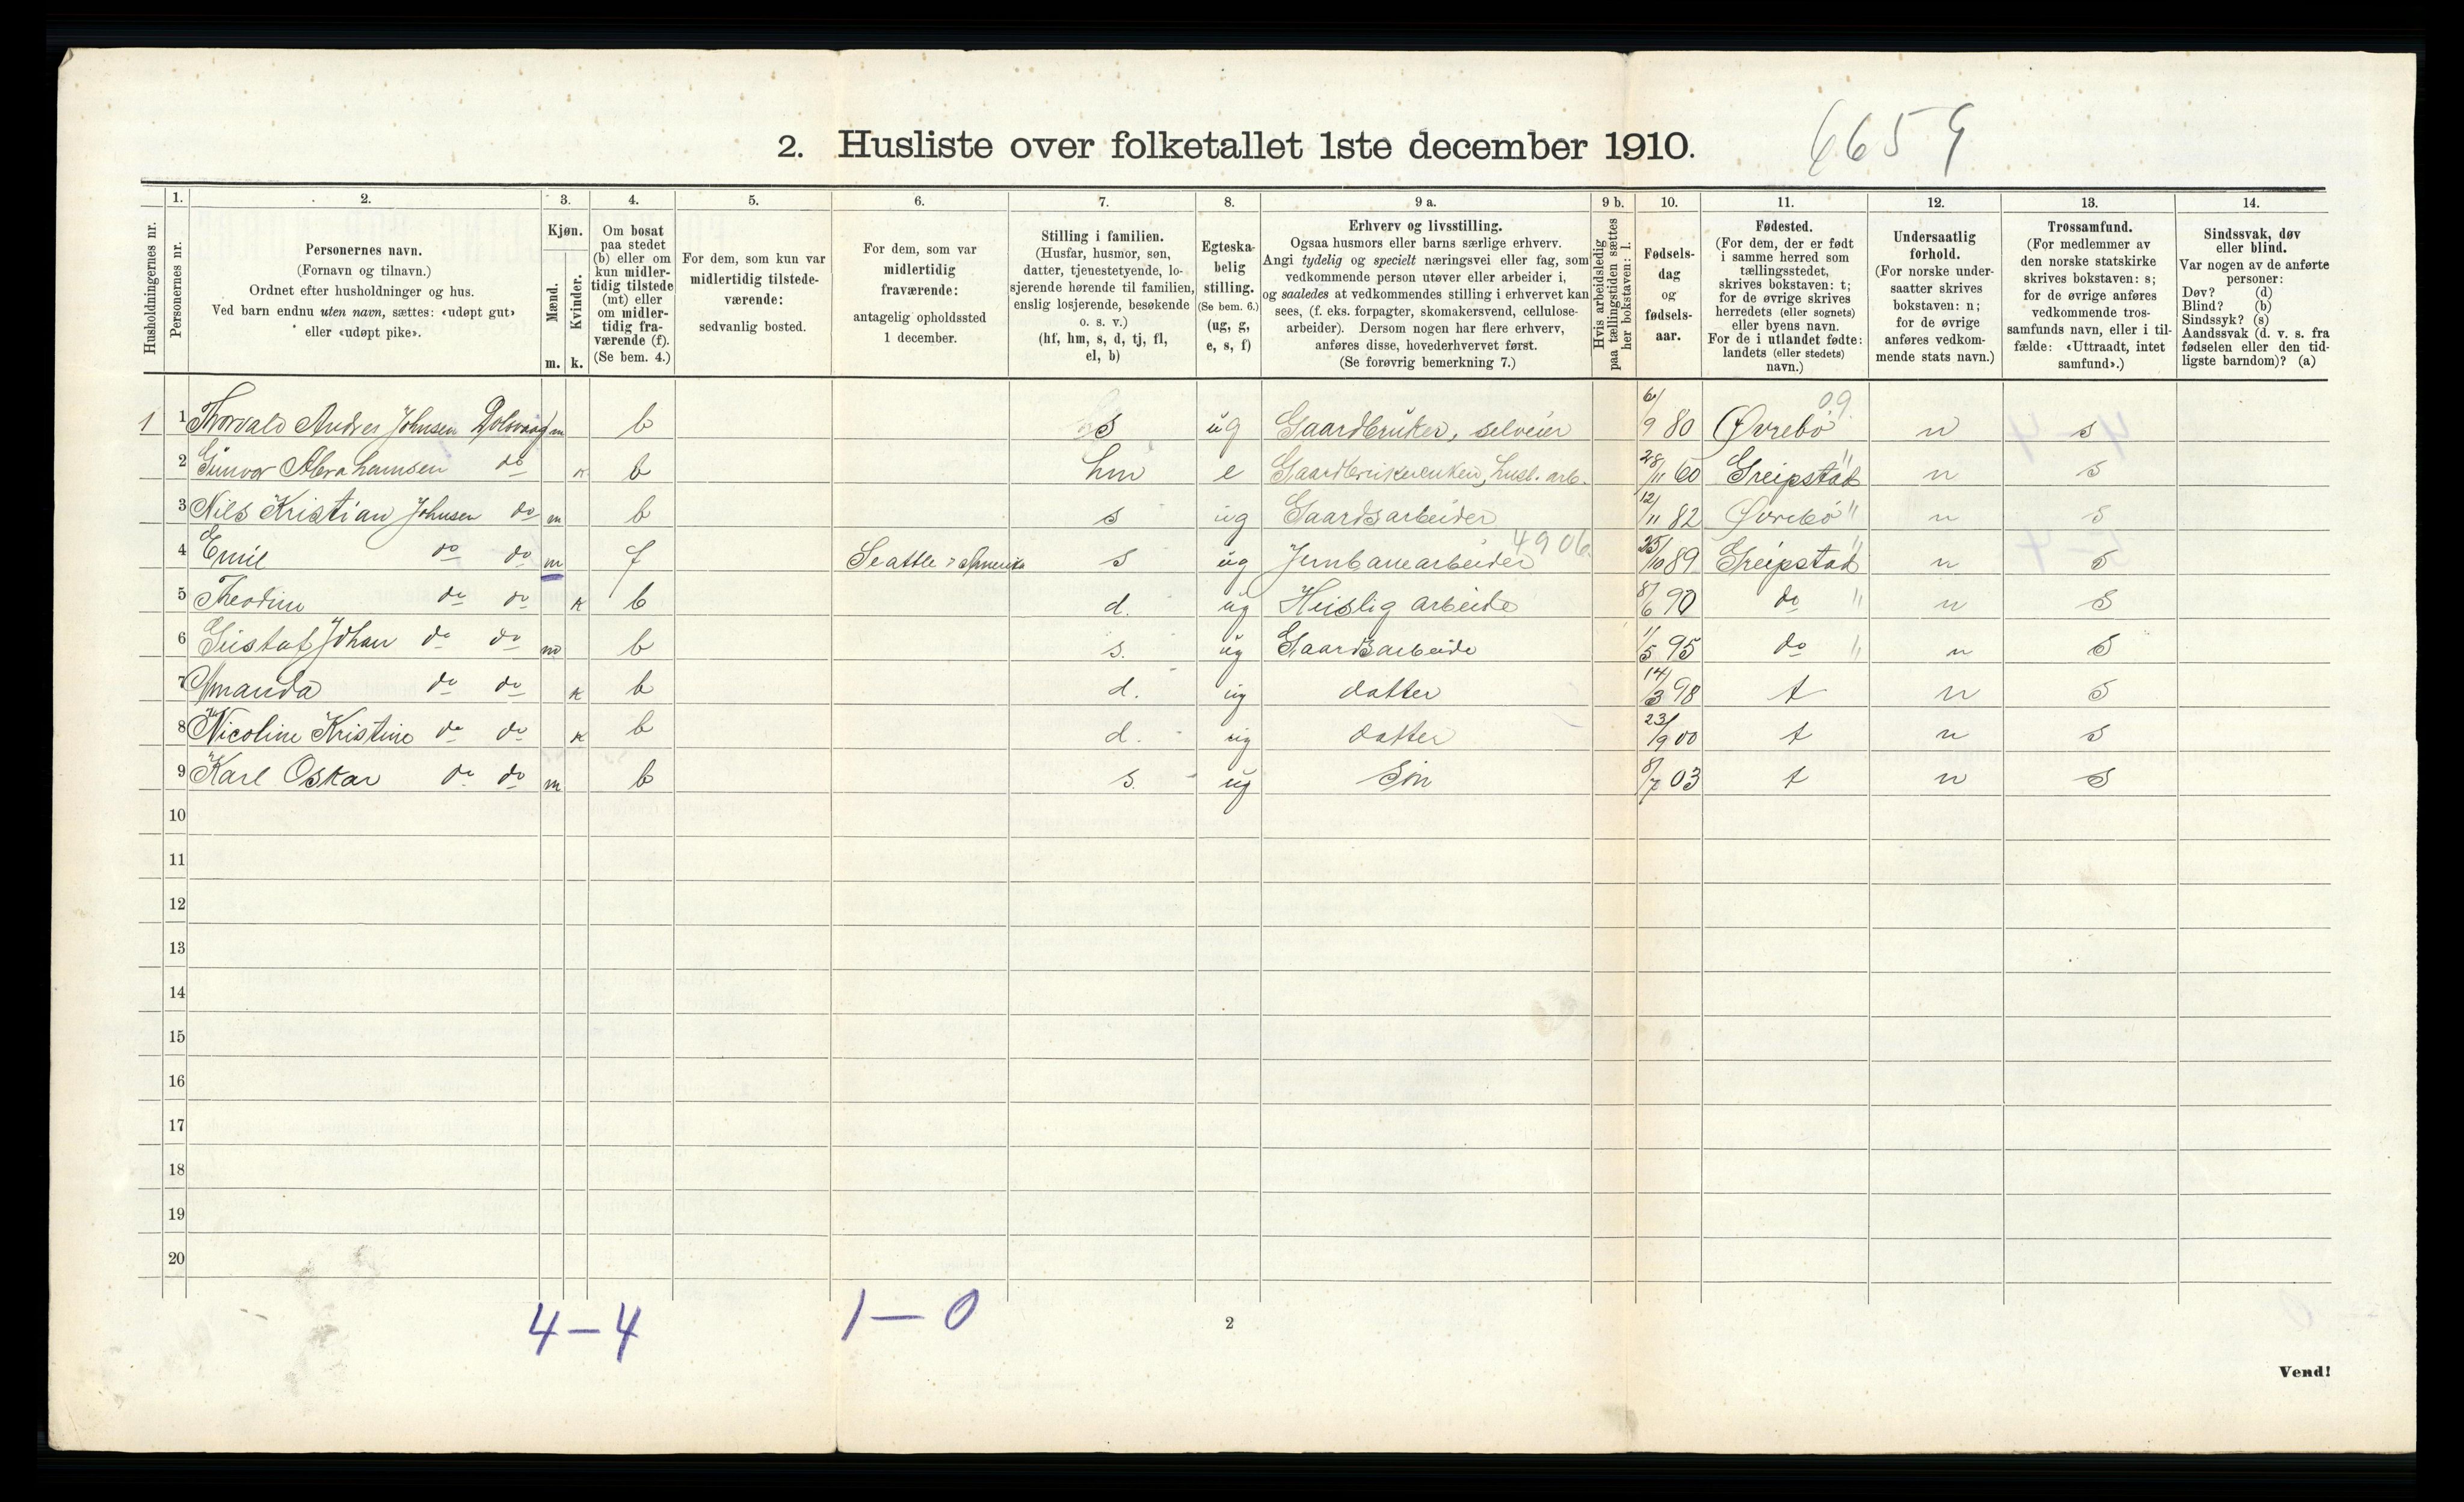 2. Husliste over folketallet 1ste december 1910.
6659
Husholdningernes nr.
1. Personernes nr.
2. Personernes navn. (Fornavn og tilnavn.) Ordnet efter husholdninger og hus. Ved barn endnu uten navn, sættes: «udøpt gut» eller «udøpt pike».
3. Kjøn. Mænd. m. Kvinder. k.
4. Om bosat paa stedet (b) eller om kun midlertidig tilstede (mt) eller om midlertidig fraværende (f). (Se bem. 4.)
5. For dem, som kun var midlertidig tilstedeværende: sedvanlig bosted.
6. For dem, som var midlertidig fraværende: antagelig opholdssted 1 december.
7. Stilling i familien. (Husfar, husmor, søn, datter, tjenestetyende, losjerende hørende til familien, enslig losjerende, besøkende o. s. v.) (hf, hm, s, d, tj, fl, el, b)
8. Egteskabelig stilling. (Se bem. 6.) (ug, g, e, s, f)
9 a. Erhverv og livsstilling. Ogsaa husmors eller barns særlige erhverv. Angi tydelig og specielt næringsvei eller fag, som vedkommende person utøver eller arbeider i, og saaledes at vedkommendes stilling i erhvervet kan sees, (f. eks. forpagter, skomakersvend, cellulosearbeider). Dersom nogen har flere erhverv, anføres disse, hovederhvervet først. (Se forøvrig bemerkning 7.)
9 b. Hvis arbeidsledig paa tællingstiden sættes her bokstaven: l.
10. Fødselsdag og fødselsaar.
11. Fødested. (For dem, der er født i samme herred som tællingsstedet, skrives bokstaven: t; for de øvrige skrives herredets (eller sognets) eller byens navn. For de i utlandet fødte: landets (eller stedets) navn.)
12. Undersaatlig forhold. (For norske undersaatter skrives bokstaven: n; for de øvrige anføres vedkommende stats navn.)
13. Trossamfund. (For medlemmer av den norske statskirke skrives bokstaven: s; for de øvrige anføres vedkommende trossamfunds navn, eller i tilfælde: «Uttraadt, intet samfund».)
14. Sindssvak, døv eller blind. Var nogen av de anførte personer: Døv? (d) Blind? (b) Sindssyk? (s) Aandssvak (d. v. s. fra fødselen eller den tidligste barndom)? (a)
09
1 1 Thorvald Andres Johnsen Dolsvaag m b s ug Gaardbruker, selveier 6/9 80 Øvrebö n s
2 Gunvor Abrahamsen do k b hm e Gaardbrukerenken, husl. arb. 28/11 60 Greipstad " n s
3 Nils Kristian Johnsen do m b s ug Gaardsarbeider 12/11 82 Øvrebö " n s
4906
4 Emil do do m f Seattle Amerika s ug Jernbanearbeider 25/10 89 Greipstad " n s
5 Theodine do do k b d. ug Huslig arbeide 8/6 90 do " n s
6 Gustaf Johan do do m b s. ug Gaardsarbeide 11/5 95 do " n s
7 Amanda do do k b d. ug datter 14/3 98 t n s
8 Nicoline Kristine do do k b d. ug datter 23/9 00 t n s
9 Karl Oskar do do m b s. ug Sön 8/7 03 t n s
10
11
12
13
14
15
16
17
18
19
20
4 - 4
1 - 0
2
Vend!